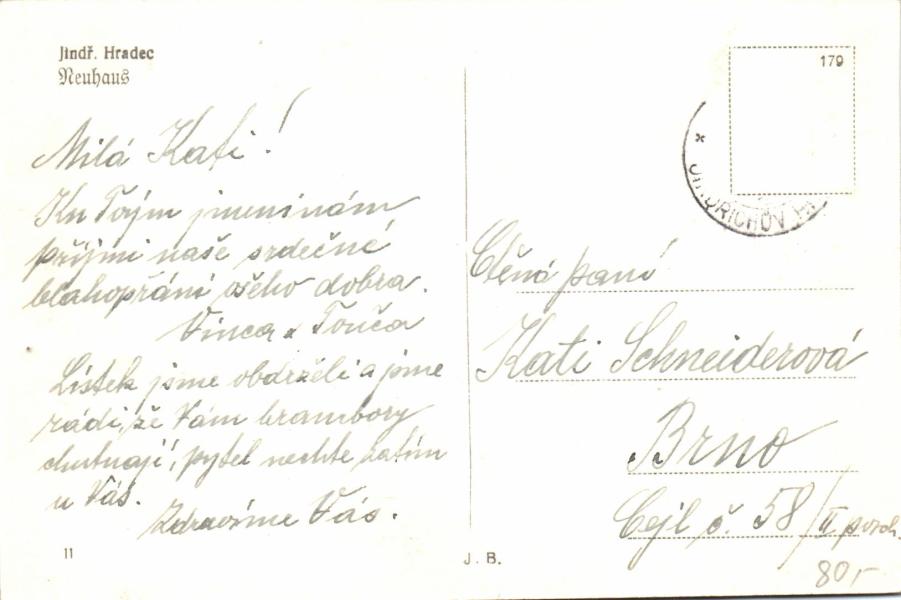 Jindř. Hradec
Neuhaus
179
JINDŘICHŮV HR
Milá Kati!
Ku Tvým jmeninám
příjmi naše srdečné
blahopřání všeho dobra.
Vinca a Tonča
Lístek jsme obdrželi a jsme
rádi, že Vám brambory
chutnají, pytel nechte zatím
u Vás.
Zdravíme Vás.
Ctěná paní
Kati Schneiderová
Brno
Cejl č. 58/II posch.
11
J. B.
80,-